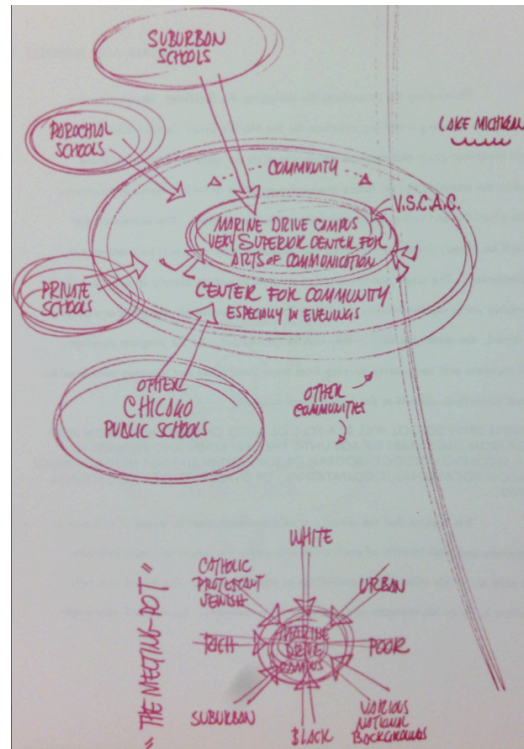 SUBURBAN
SCHOOLS
PAROCHIAL
SCHOOLS
LAKE MICHIGAN
COMMUNITY
V.S.C.A.C.
MARINE DRIVE CAMPUS
VERY SUPERIOR CENTER FOR
ARTS OF COMMUNICATION
PRIVATE
SCHOOLS
CENTER FOR COMMUNITY
ESPECIALLY IN EVENINGS
OTHER
CHICAGO
PUBLIC SCHOOLS
OTHER
COMMUNITIES
"THE MELTING-POT"
WHITE
CATHOLIC
PROTESTANT
JEWISH
URBAN
RICH
MARINE
DRIVE
CAMPUS
POOR
SUBURBAN
BLACK
VARIOUS
NATIONAL
BACKGROUNDS